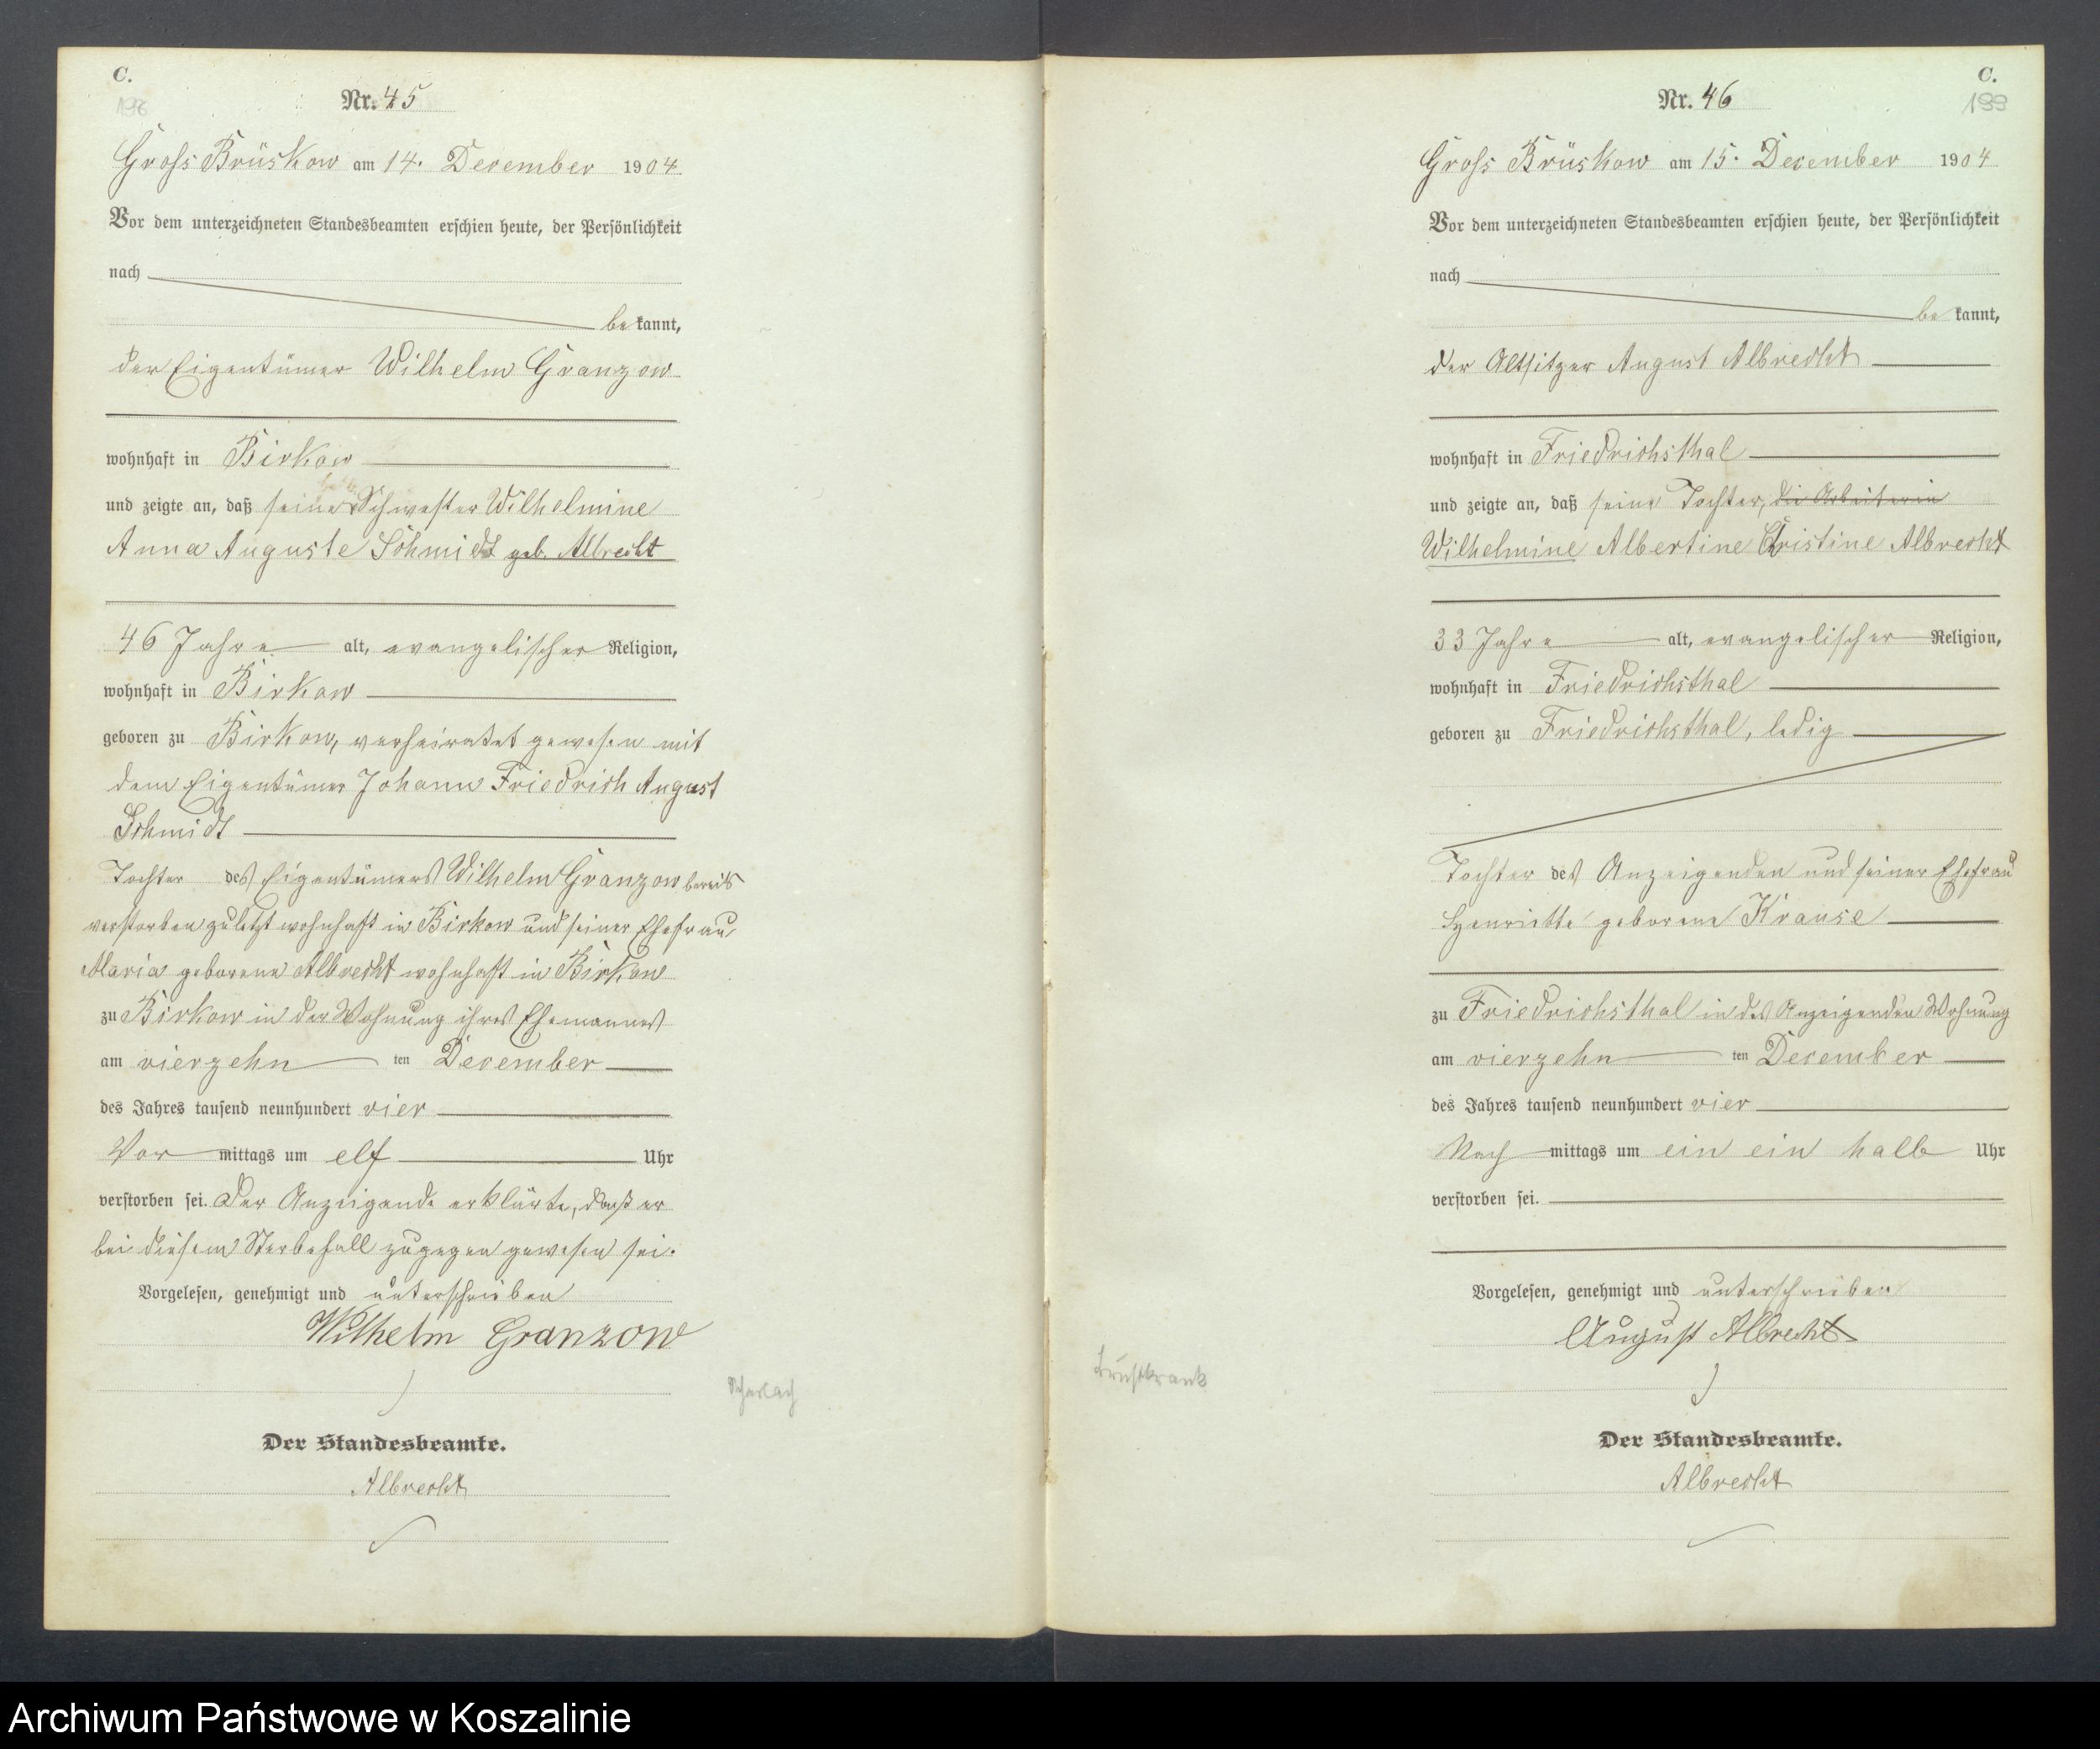 C.
198
Nr. 45
Gross Brüskow am 14. December 1904
Vor dem unterzeichneten Standesbeamten erschien heute, der Persönlichkeit
nach
bekannt,
der Eigentümer Wilhelm Granzow
wohnhaft in Birkow
und zeigte an, daß seine Schwester Wilhelmine
Anna Auguste Schmidt geb. Albrecht
46 Jahre alt, evangelischer Religion,
wohnhaft in Birkow
geboren zu Birkow, verheiratet gewesen mit
dem Eigentümer Johann Friedrich August
Schmidt
Tochter des Eigentümers Wilhelm Granzow bereits
verstorben zuletzt wohnhaft in Birkow und seiner Ehefrau
Maria geborene Albrecht wohnhaft in Birkow
zu Birkow in der Wohnung ihres Ehemannes
am vierzehn ten December
des Jahres tausend neunhundert vier
Vor mittags um elf Uhr
verstorben sei. Der Anzeigende erklärte, daß er
bei diesem Sterbefall zugegen gewesen sei.
Vorgelesen, genehmigt und unterschrieben
Wilhelm Granzow
Scharlach
Der Standesbeamte.
Albrecht
C.
199
Nr. 46
Gross Brüskow am 15. December 1904
Vor dem unterzeichneten Standesbeamten erschien heute, der Persönlichkeit
nach
bekannt,
der Altsitzer August Albrecht
wohnhaft in Friedrichsthal
und zeigte an, daß seine Tochter, die Arbeiterin
Wilhelmine Albertine Christine Albrecht
33 Jahre alt, evangelischer Religion,
wohnhaft in Friedrichsthal
geboren zu Friedrichsthal, ledig
Tochter des Anzeigenden und seiner Ehefrau
Henriette geborene Krause
zu Friedrichsthal in des Anzeigenden Wohnung
am vierzehn ten December
des Jahres tausend neunhundert vier
Nach mittags um ein ein halb Uhr
verstorben sei.
Vorgelesen, genehmigt und unterschrieben
August Albrecht
Brustkrank
Der Standesbeamte.
Albrecht
Archiwum Państwowe w Koszalinie